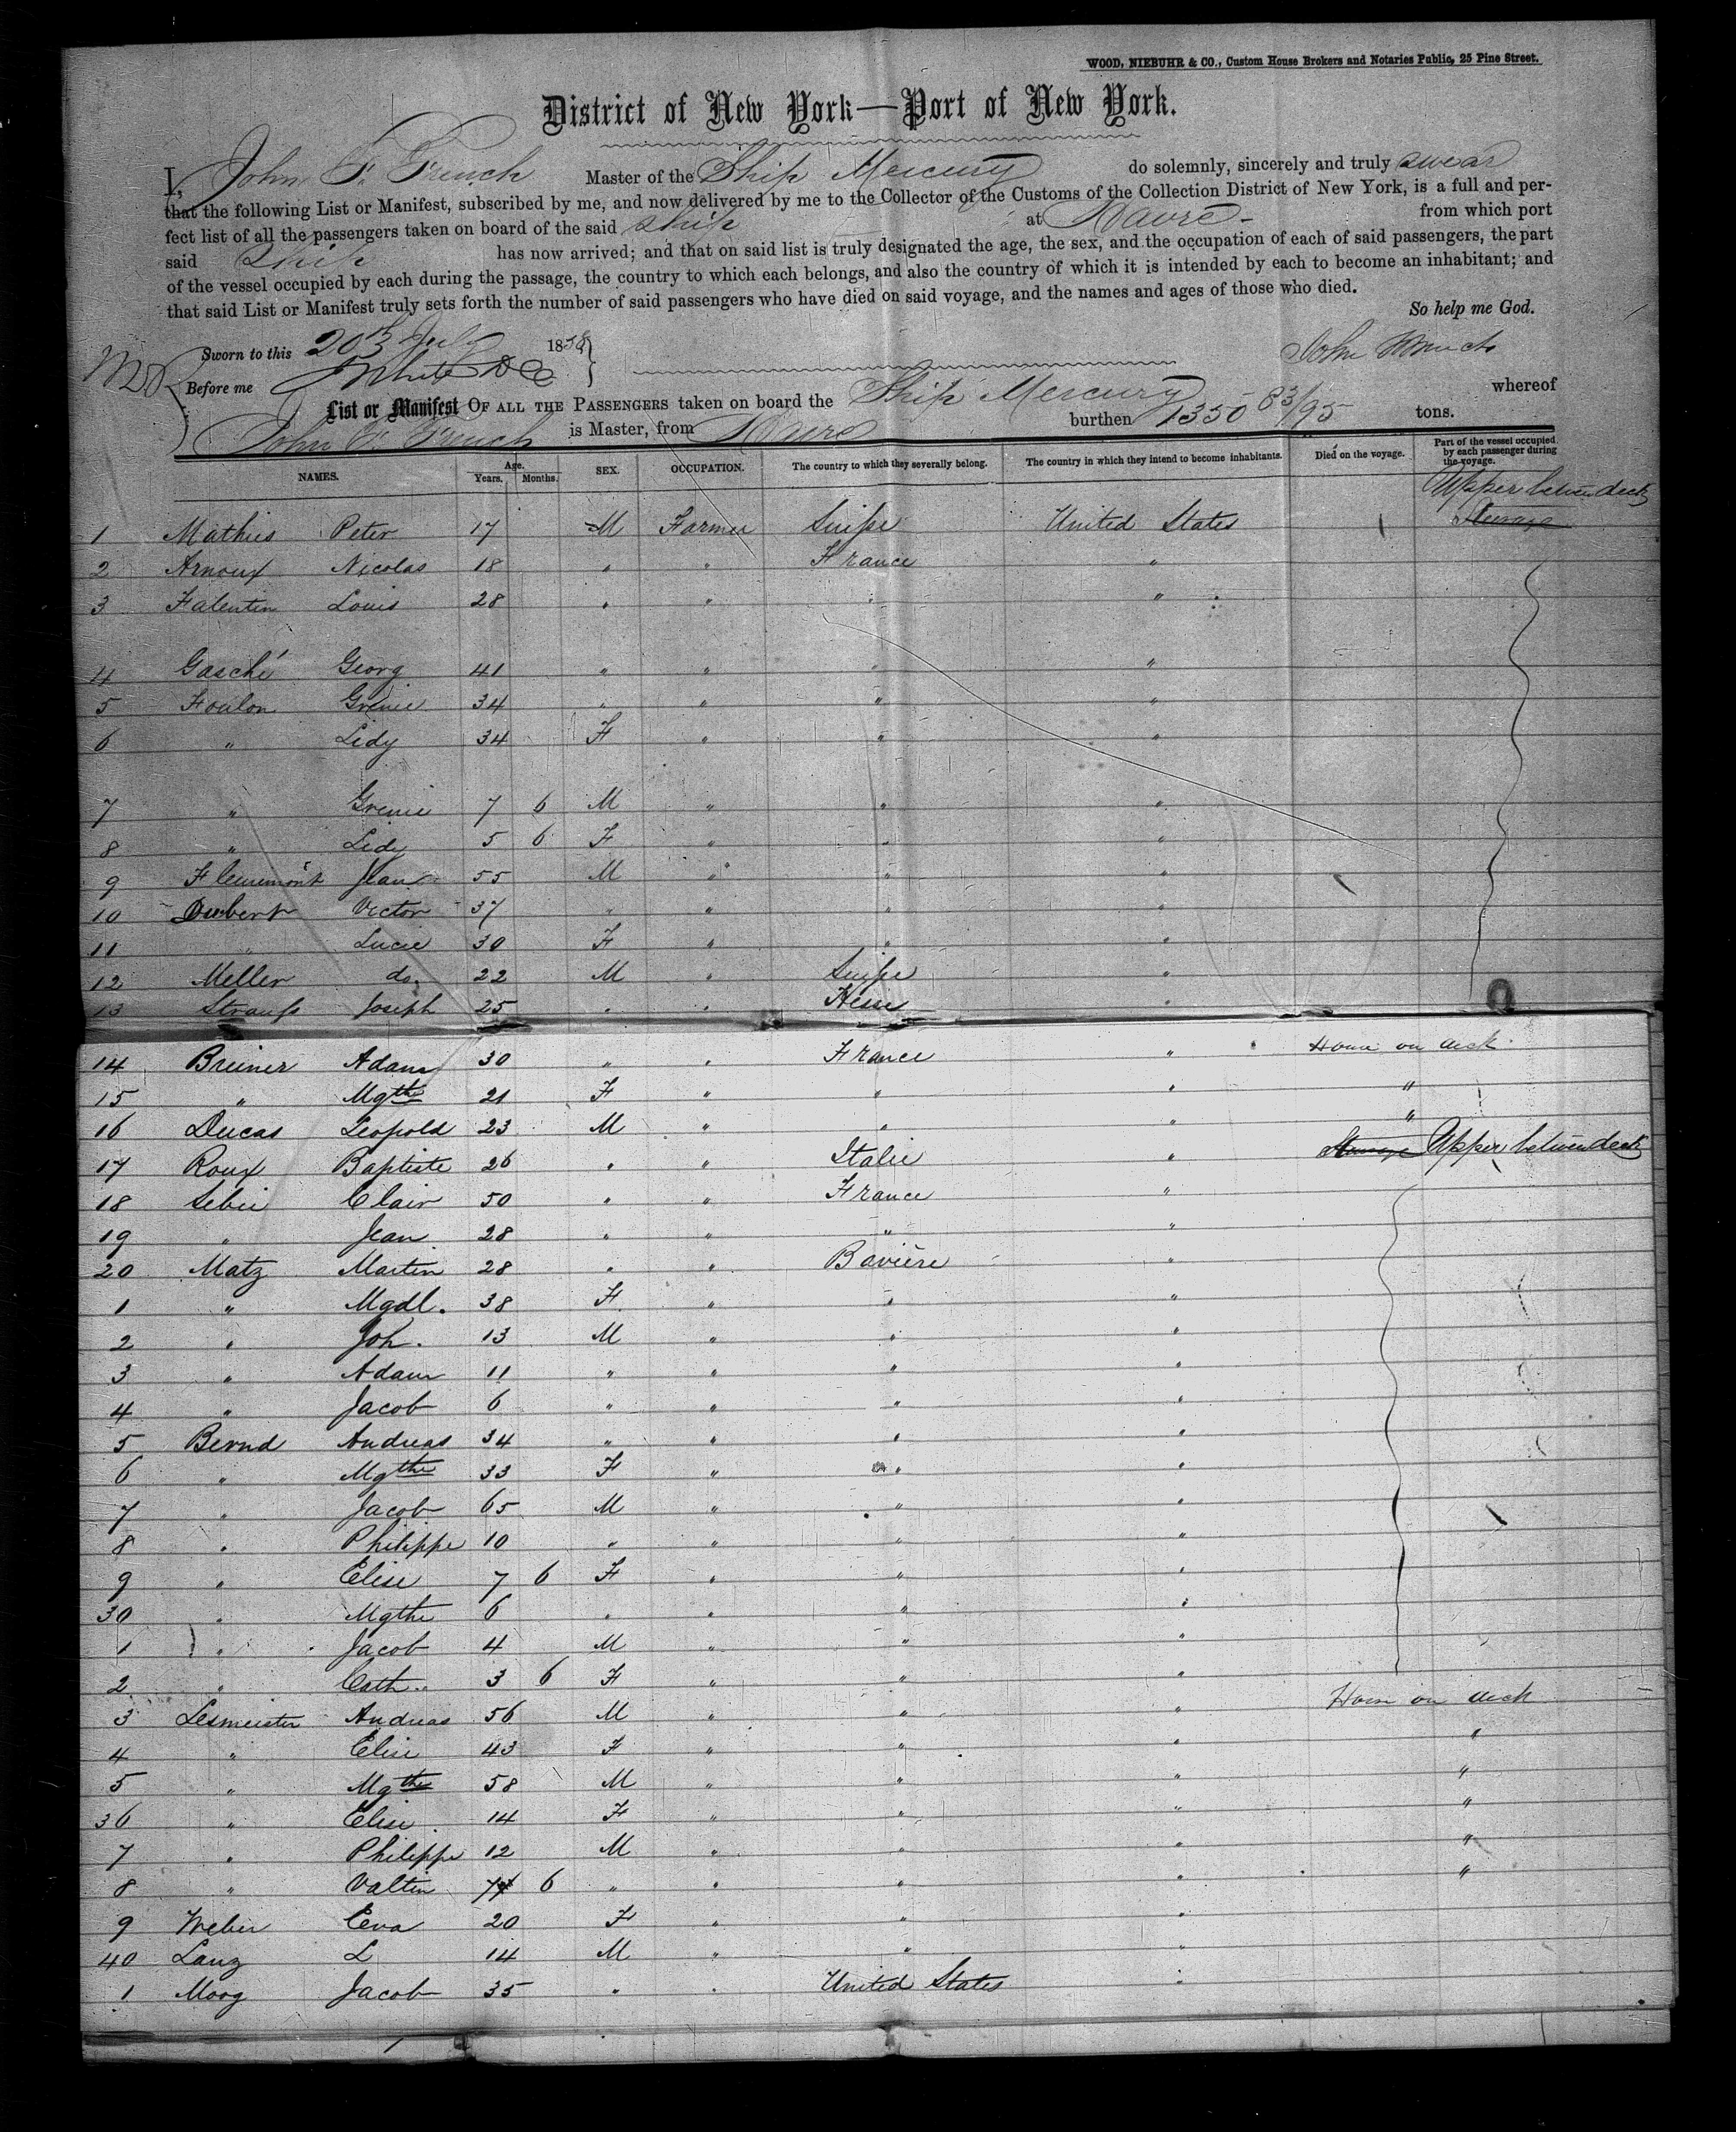 WOOD, NIEBUHR & CO., Custom House Brokers and Notaries Public, 25 Pine Street.
District of New York—Port of New York.
I, John F. French Master of the Ship Mercury do solemnly, sincerely and truly swear
that the following List or Manifest, subscribed by me, and now delivered by me to the Collector of the Customs of the Collection District of New York, is a full and per-
fect list of all the passengers taken on board of the said Ship at Havre - from which port
said Ship has now arrived; and that on said list is truly designated the age, the sex, and the occupation of each of said passengers, the part
of the vessel occupied by each during the passage, the country to which each belongs, and also the country of which it is intended by each to become an inhabitant; and
that said List or Manifest truly sets forth the number of said passengers who have died on said voyage, and the names and ages of those who died.
So help me God.
Sworn to this 20th July 1858
John French
Before me
List or Manifest OF ALL THE PASSENGERS taken on board the Ship Mercury whereof
John F. French is Master, from Havre burthen 1350 83/95 tons.
NAMES. Age. Years. Months. SEX. OCCUPATION. The country to which they severally belong. The country in which they intend to become inhabitants. Died on the voyage. Part of the vessel occupied by each passenger during the voyage.
Upper between deck
1 Mathis Peter 17 M Farmer Suisse United States Steerage
2 Arnoux Nicolas 18 " " France "
3 Falentin Louis 28 " " " "
4 Gasché Georg 41 " " " "
5 Foulon Grenie 34 " " " "
6 " Lidy 34 F " " "
7 " Grenie 7 6 M " " "
8 " Lidy 5 6 F " " "
9 Fleurimont Jean 55 M " " "
10 Dubert Victor 37 " " " "
11 " Lucie 30 F " " "
12 Meller do. 22 M " Suisse "
13 Strauss Joseph 25 " " Hesse "
14 Breiner Adam 30 " " France " House on deck
15 " Mgthe 21 F " " " "
16 Ducas Leopold 23 M " " " "
17 Roux Baptiste 26 " " Italie " Steerage Upper between deck
18 Sebie Clair 50 " " France "
19 " Jean 28 " " " "
20 Matz Martin 28 " " Bavière "
1 " Mgdl. 38 F " " "
2 " Joh. 13 M " " "
3 " Adam 11 " " " "
4 " Jacob 6 " " " "
5 Bernd Andreas 34 " " " "
6 " Mgthe 33 F " " "
7 " Jacob 65 M " " "
8 " Philippe 10 " " " "
9 " Elise 7 6 F " " "
30 " Mgthe 6 " " " "
1 " Jacob 4 M " " "
2 " Cath. 3 6 F " " "
3 Lesmeister Andreas 56 M " " " House on deck
4 " Elise 43 F " " " "
5 " Mgthe 58 M " " " "
36 " Elise 14 F " " " "
7 " Philippe 12 M " " " "
8 " Valtin 7 6 " " " " "
9 Weber Eva 20 F " " "
40 Lanz L 14 M " " "
1 Moog Jacob 35 " " United States "